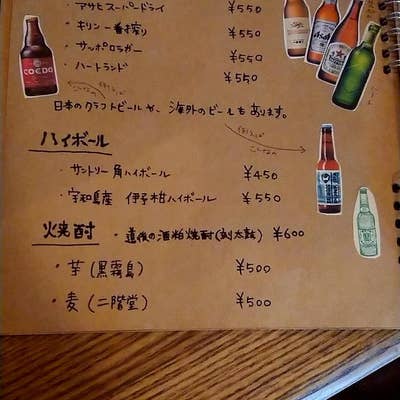 ・アサヒスーパードライ ¥550
・キリン一番搾り ¥550
・サッポロラガー ¥550
・ハートランド ¥550
COEDO
日本のクラフトビールや、海外のビールもあります。
ハイボール
・サントリー角ハイボール ¥450
・宇和島産 伊予柑ハイボール ¥550
焼酎 ・道後の酒粕焼酎(刻太鼓) ¥600
・芋(黒霧島) ¥500
・麦(二階堂) ¥500